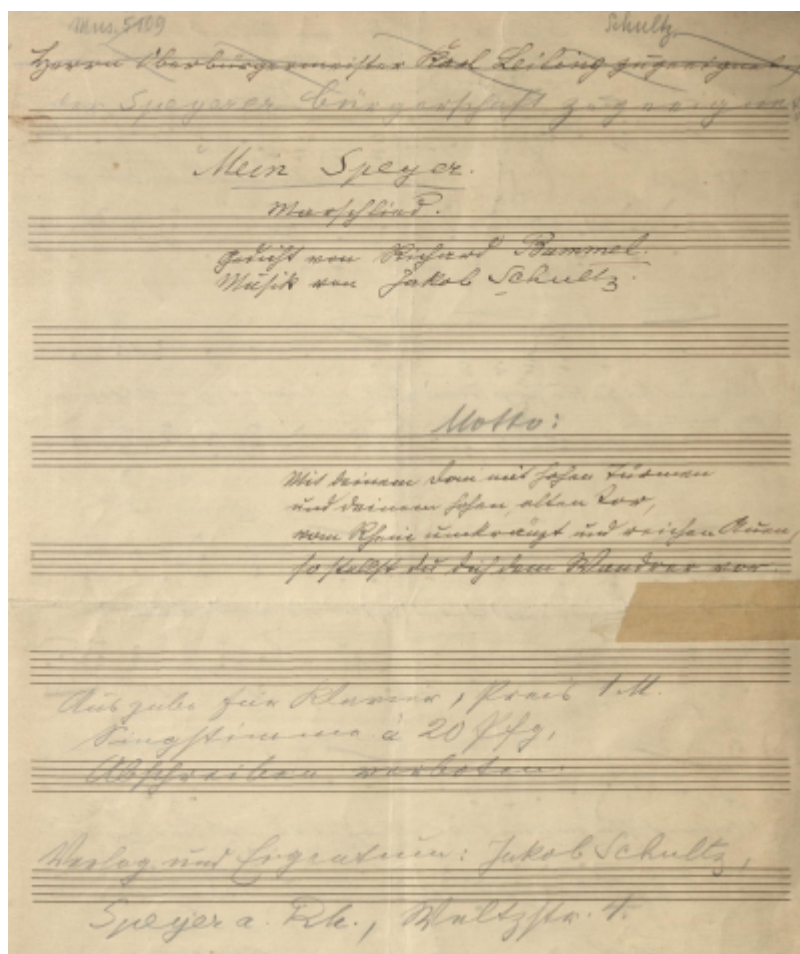 Mus. 5109
Schultz
Herrn Oberbürgermeister Karl Leiling zugeeignet
der Speyerer Bürgerschaft zugeeignet
Mein Speyer.
Marschlied.
Gedicht von Richard Bummel.
Musik von Jakob Schultz.
Motto:
Mit deinem Dom mit hohen Türmen
und deinem hohen alten Tor,
vom Rhein umkränzt und reichen Auen,
so stellst du dich dem Wandrer vor.
Ausgabe für Klavier, Preis 1 M.
Singstimme à 20 Pfg,
Abschreiben verboten.
Verlag und Eigentum: Jakob Schultz,
Speyer a. Rh., Weltzstr. 4.